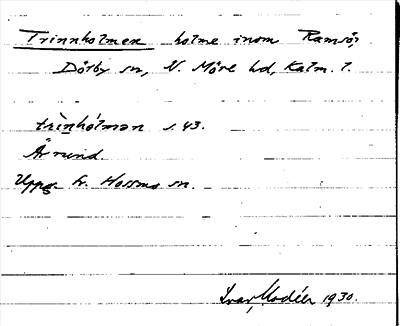 Trinnholmen holme inom Ramsö,
Dörby sn, N. Möre hd, Kalm. l.
trìnhólmən s. 43.
Är rund.
Uppg. fr. Hossmo sn.
Ivar Modéer 1930.